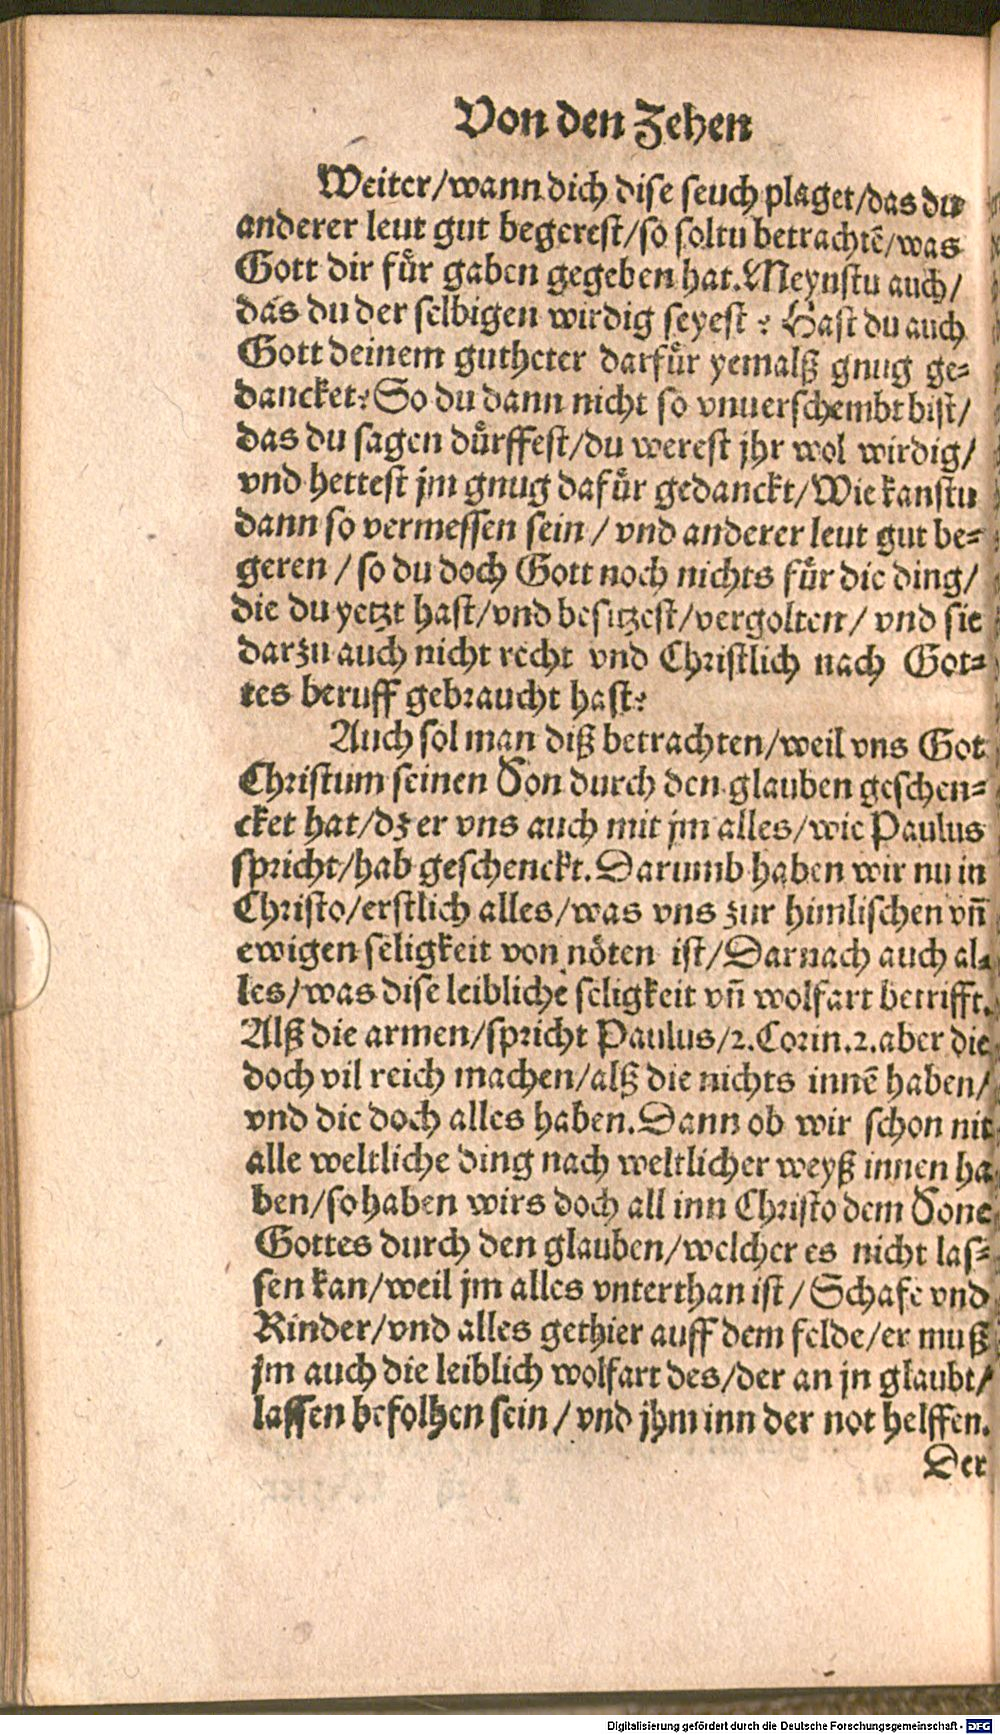 Von den Zehen
Weiter/wann dich dise seuch plaget/das du
anderer leut gut begerest/so soltu betrachtē/was
Gott dir für gaben gegeben hat. Meynstu auch/
das du der selbigen wirdig seyest? Hast du auch
Gott deinem gutheter darfür yemalß gnug ge=
dancket? So du dann nicht so vnuerschembt bist/
das du sagen dürffest/du werest jhr wol wirdig/
vnd hettest jm gnug dafür gedanckt/Wie kanstu
dann so vermessen sein/vnd anderer leut gut be=
geren/so du doch Gott noch nichts für die ding/
die du yetzt hast/vnd besitzest/vergolten/vnd sie
darzu auch nicht recht vnd Christlich nach Got=
tes beruff gebraucht hast?
Auch sol man diß betrachten/weil vns Got
Christum seinen Son durch den glauben geschen=
cket hat/dz er vns auch mit jm alles/wie Paulus
spricht/hab geschenckt. Darumb haben wir nu in
Christo/erstlich alles/was vns zur himlischen vñ
ewigen seligkeit von nöten ist/Darnach auch al=
les/was dise leibliche seligkeit vñ wolfart betrifft.
Alß die armen/spricht Paulus/2.Corin.2.aber die
doch vil reich machen/alß die nichts innē haben/
vnd die doch alles haben. Dann ob wir schon nit
alle weltliche ding nach weltlicher weyß innen ha
ben/so haben wirs doch all inn Christo dem Sone
Gottes durch den glauben/welcher es nicht las=
sen kan/weil jm alles vnterthan ist/Schafe vnd
Rinder/vnd alles gethier auff dem felde/er muß
jm auch die leiblich wolfart des/der an jn glaubt/
lassen befolhen sein/vnd jhm inn der not helffen.
Der
Digitalisierung gefördert durch die Deutsche Forschungsgemeinschaft - DFG